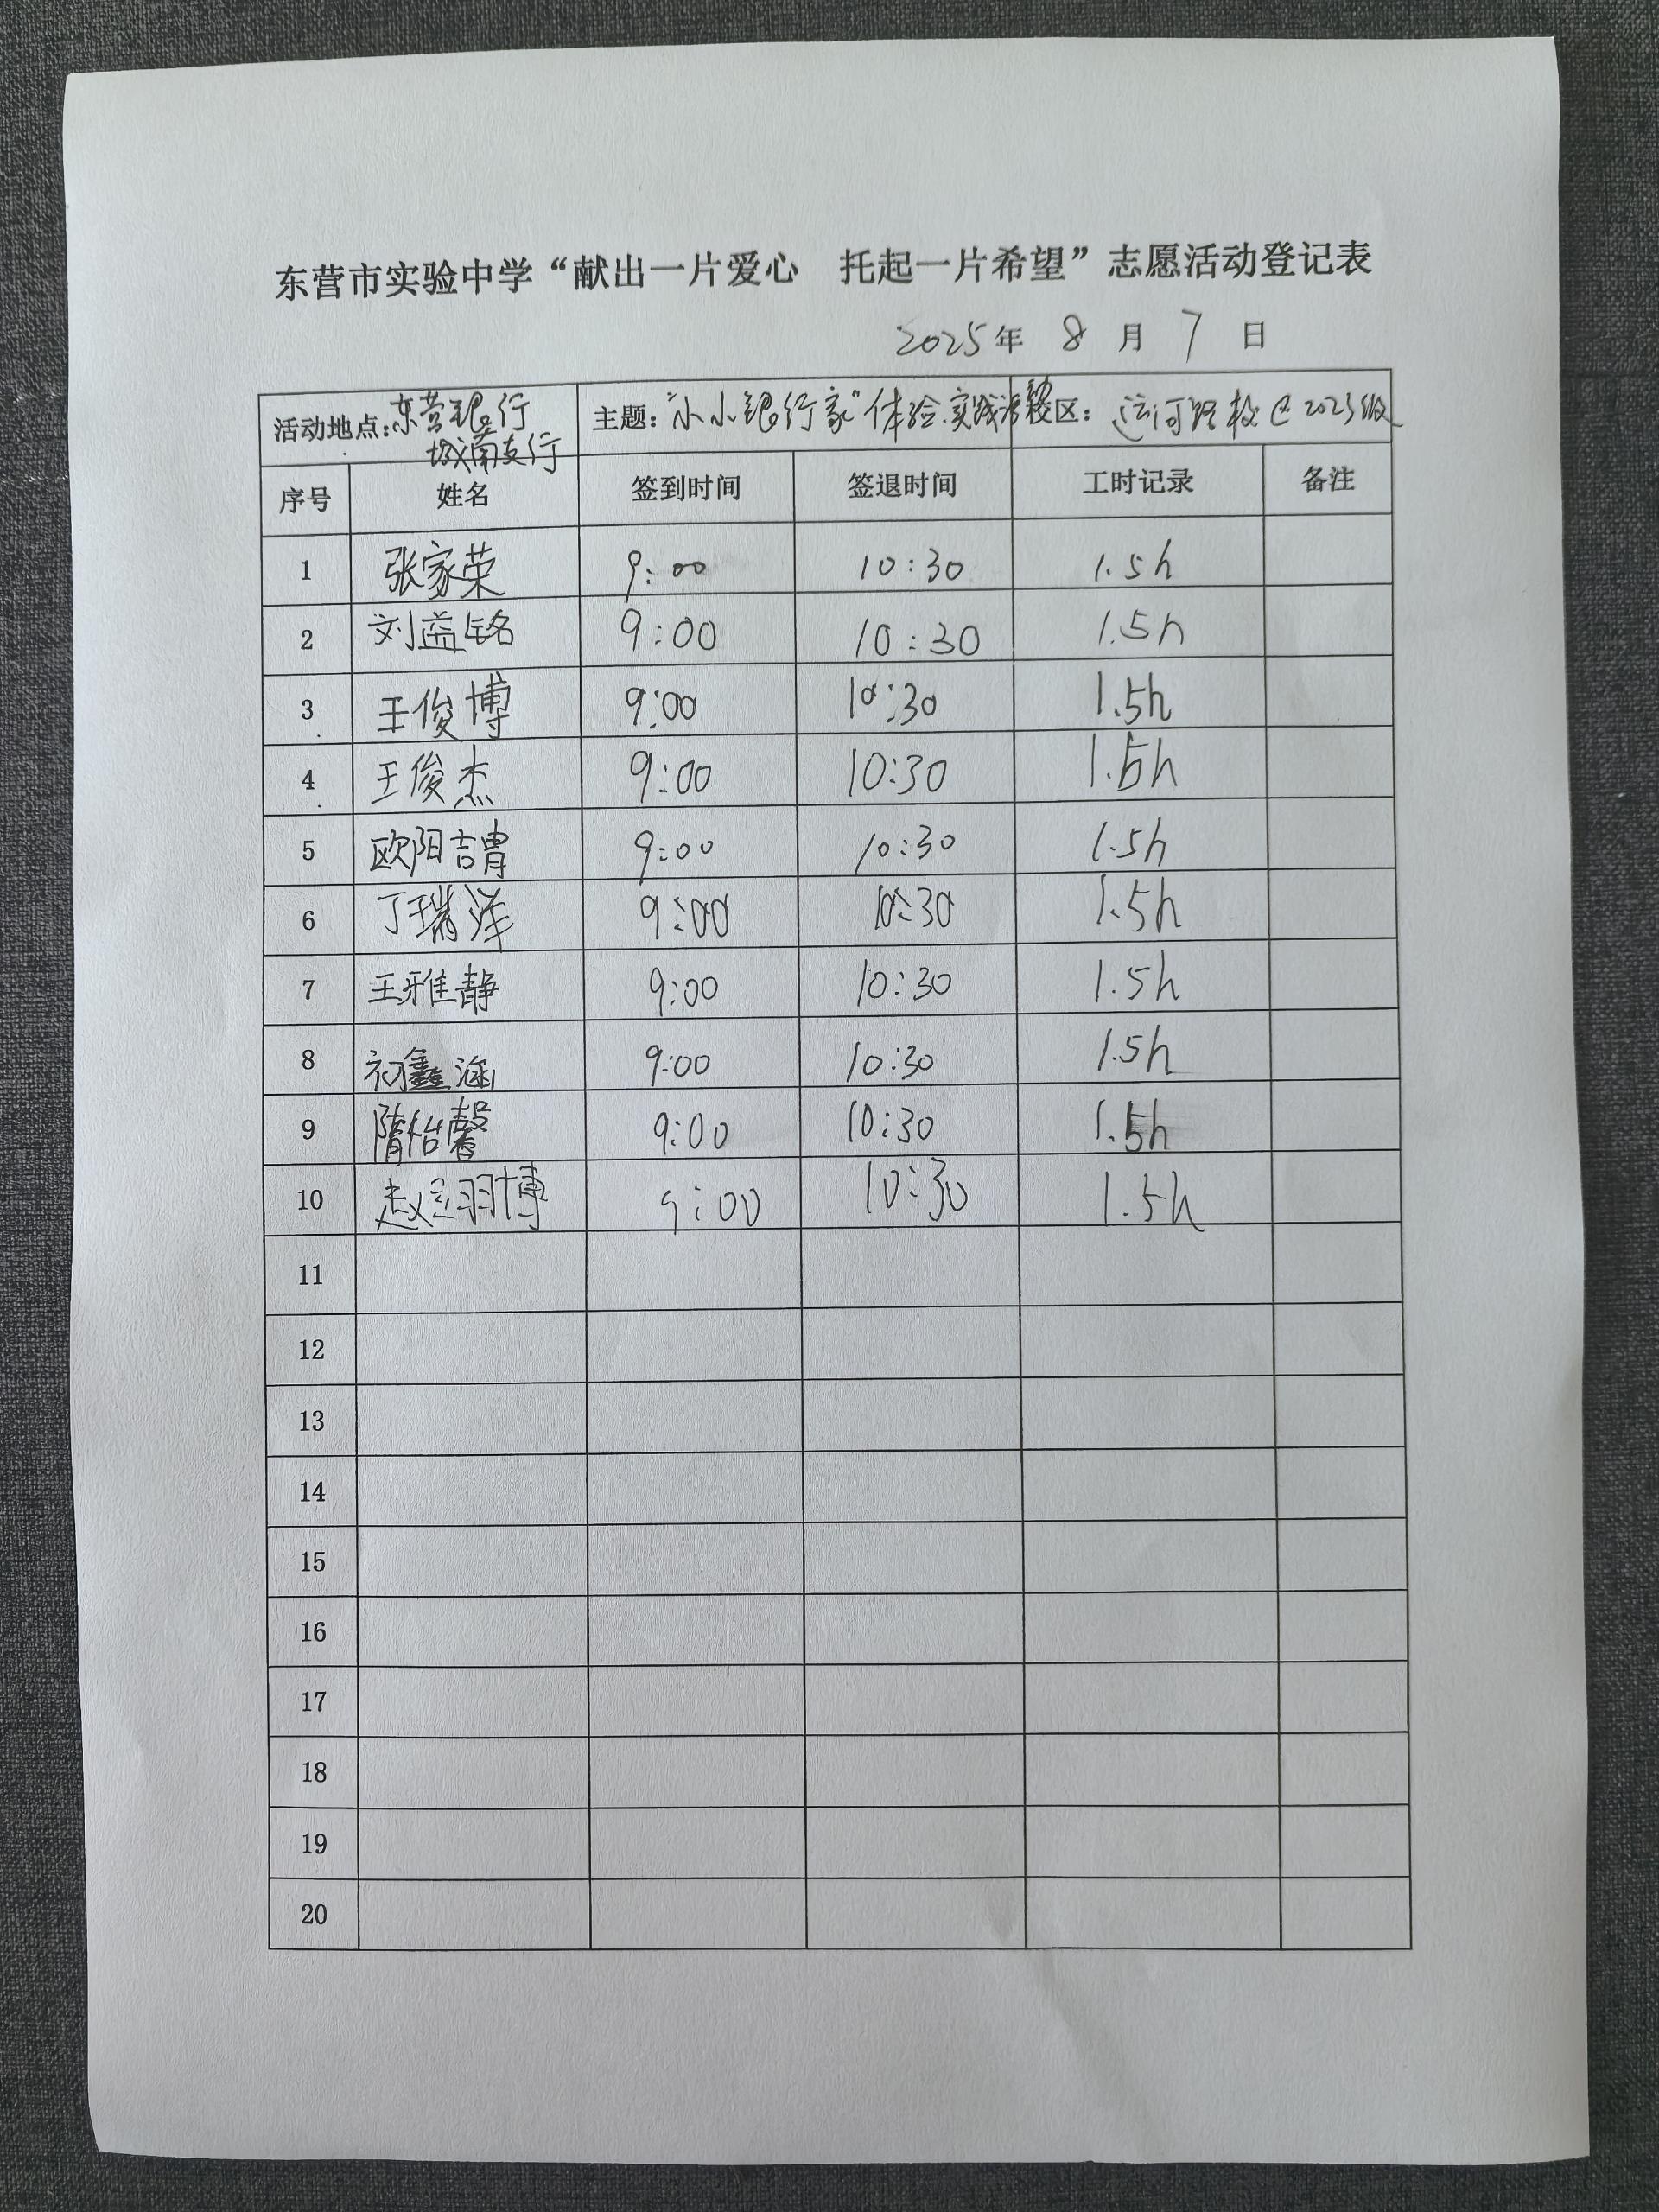 东营市实验中学“献出一片爱心 托起一片希望”志愿活动登记表
2025年 8 月 7 日
活动地点:东营银行城南支行 主题:“小小银行家”体验实践活动 校区:运河路校区2023级
序号 姓名 签到时间 签退时间 工时记录 备注
1 张家荣 9:00 10:30 1.5h
2 刘益铭 9:00 10:30 1.5h
3 王俊博 9:00 10:30 1.5h
4 王俊杰 9:00 10:30 1.5h
5 欧阳吉胄 9:00 10:30 1.5h
6 丁瑞洋 9:00 10:30 1.5h
7 王雅静 9:00 10:30 1.5h
8 初鑫涵 9:00 10:30 1.5h
9 隋怡馨 9:00 10:30 1.5h
10 赵羽博 9:00 10:30 1.5h
11
12
13
14
15
16
17
18
19
20